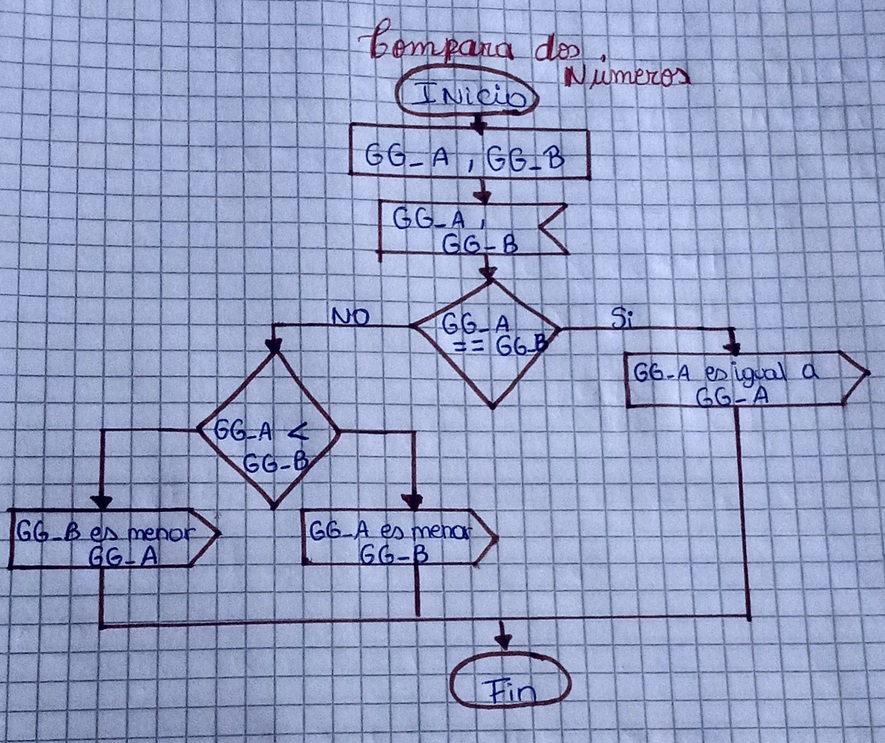 Compara dos
Números
INicio
GG_A , GG_B
GG_A ,
GG_B
GG_A
== GG_B
NO
Si
GG_A es igual a
GG_A
GG_A <
GG_B
GG_B es menor
GG_A
GG_A es menor
GG_B
Fin